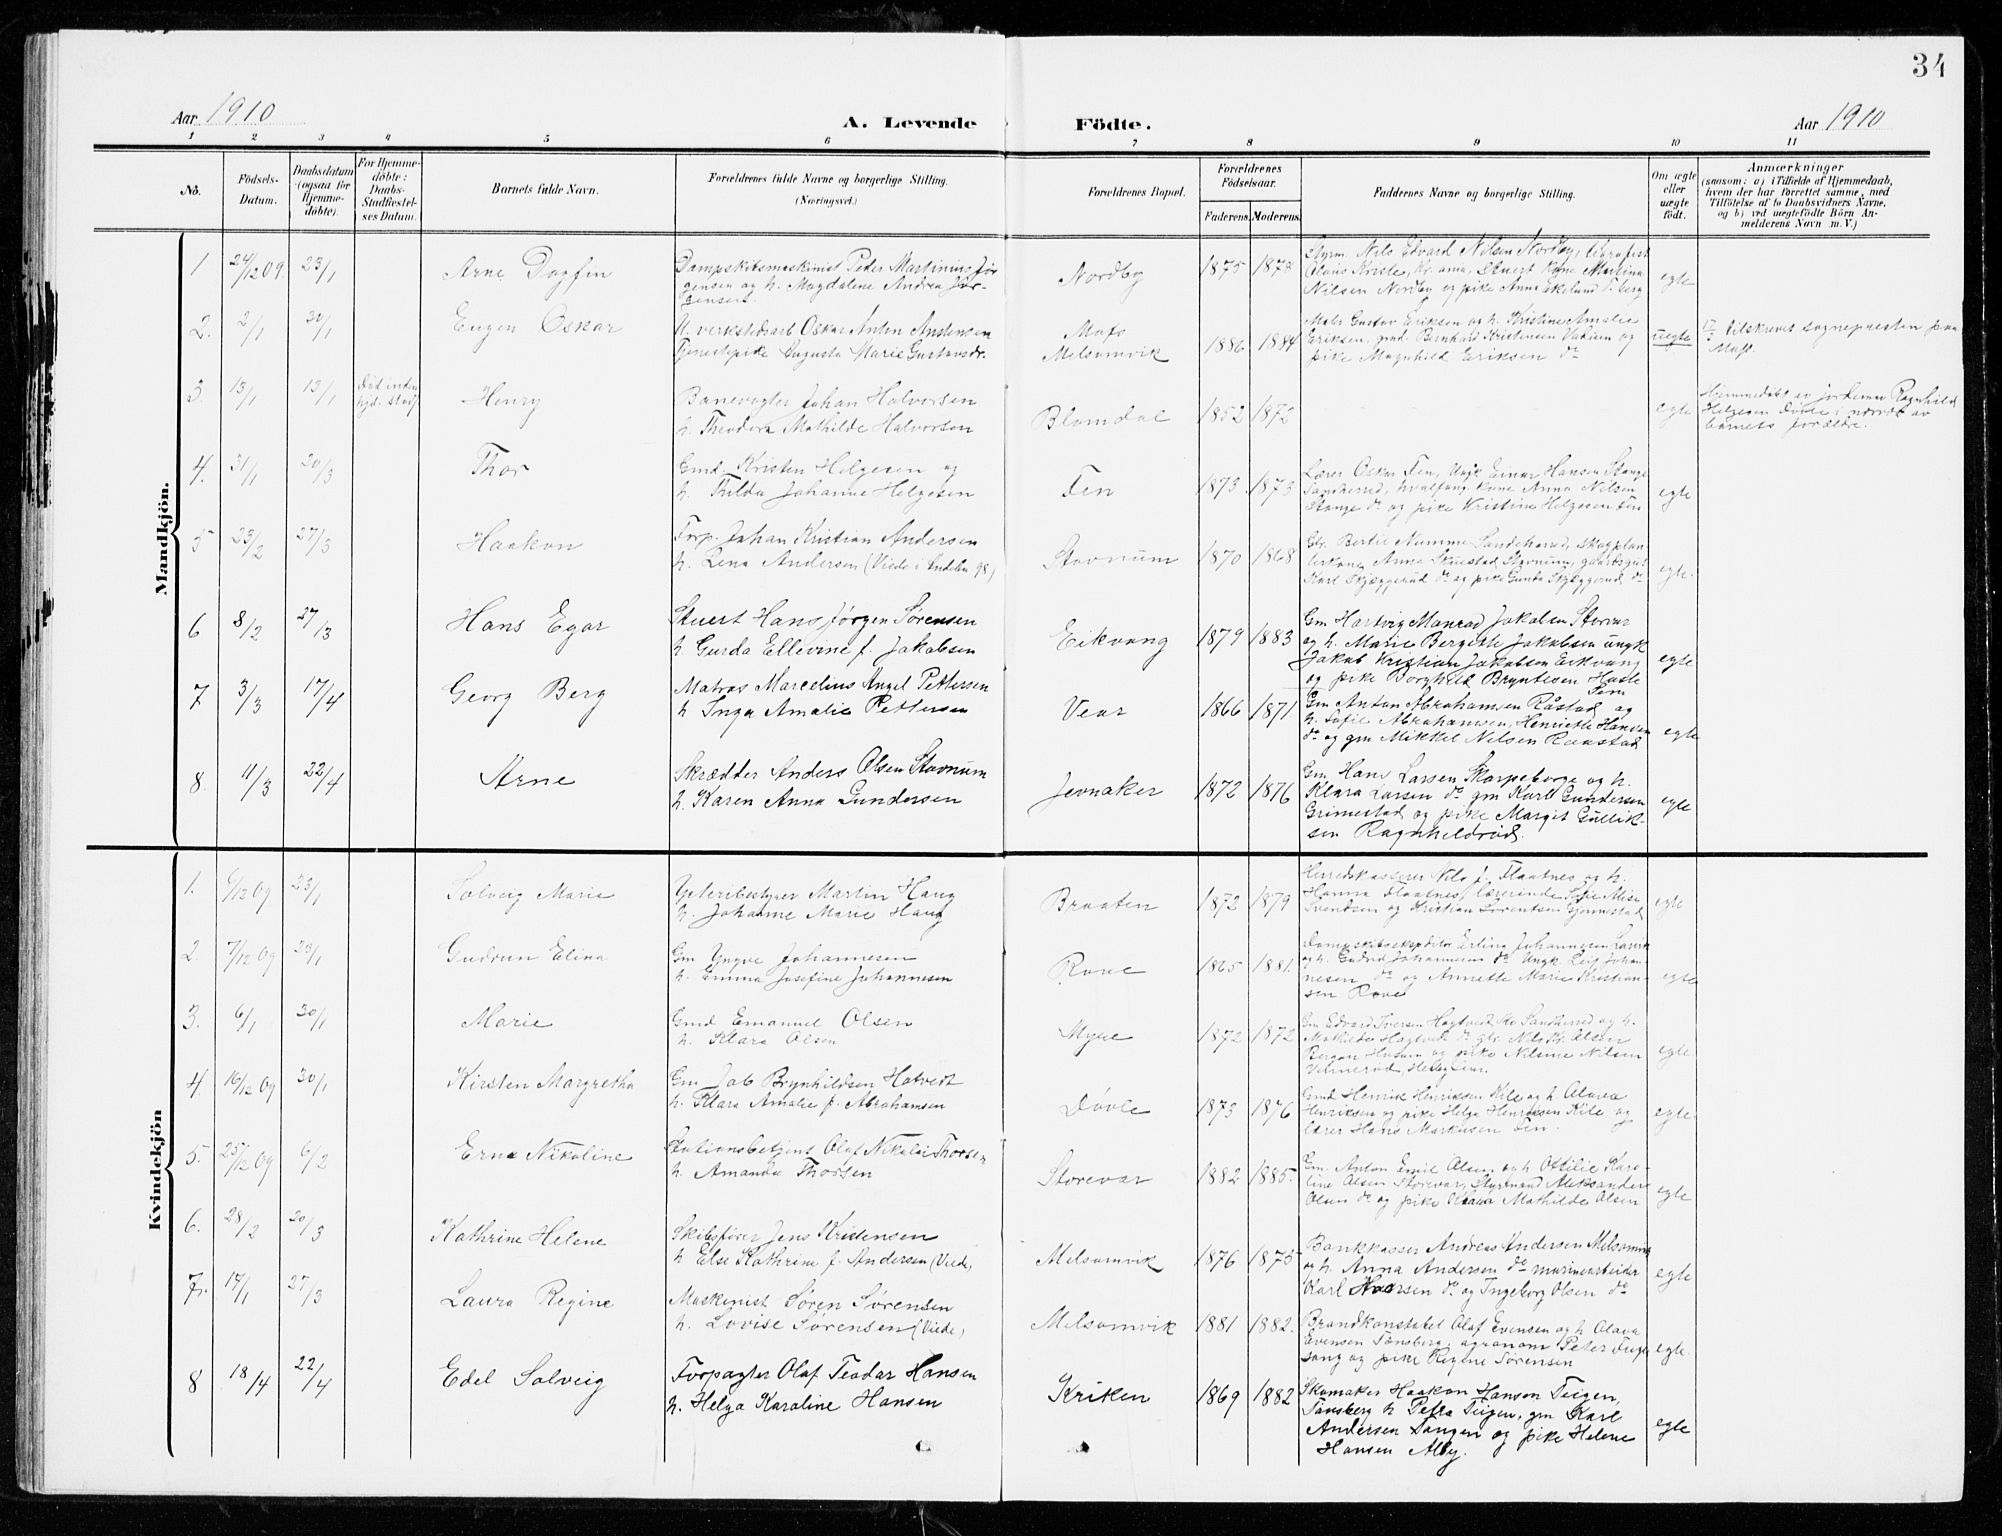 34
Aar 1910
A. Levende Födte.
Aar 1910
1 2 3 4 5 6 7 8 9 10 11
No.
Födsels-
Datum.
Daabsdatum
(ogsaa for
Hjemme-
döbte).
For Hjemme-
döbte:
Daabs-
Stadfæstel-
ses Datum.
Barnets fulde Navn.
Forældrenes fulde Navne og borgerlige Stilling.
(Næringsvei.)
Forældrenes Bopæl.
Forældrenes
Födselsaar.
Faderens. Moderens.
Faddernes Navne og borgerlige Stilling.
Om ægte
eller
uægte
födt.
Anmærkninger
(saasom: a) i Tilfælde af Hjemmedaab,
hvem der har forrettet samme, med
Tilföielse af to Daabsvidners Navne,
og b) ved uægtefödte Börn An-
melderens Navn m. V.)
Mandkjön.
1 24/12 09. 23/1 Arne Dagfin
Dampskibsmaskinist Peder Martinius Jør-
gensen og h. Magdalene Andrea Jør-
gensen
Nordby 1875 1878
Styrm. Nils Edvard Nilsen Nordby,
Nilsen Nordby og pike Anna Ekelund
egte
2. 2/1 30/1 Eugen Oskar
U. verkstedsarb Oskar Anton Andensen
Tjenestepike Augusta Marie Gustavsdr.
Moss
Melsomvik 1886 1884
Maler Gustav Eriksen og h. Kristine Amalie
Eriksen, gmd. Bernhard Kristensen og
pike Magnhild Eriksen do
uegte
17/3 tilskrevet sognepresten paa
3. 13/1 13/1 Død inden
Henry
Banevogter Johan Halvorsen
h. Theodora Mathilde Halvorsen
Blomdal 1852 1872
egte
Hjemmedøbt av jordemor Ragnhild
Helgesen Døvle i nærvær av
barnets forældre.
4. 31/1 20/3 Thor
Gmd. Kristen Helgesen og
h. Thilda Johanne Helgesen
Fen 1873. 1873
Lærer Oskar Fen, Ungk Einar Hansen Stange
Sandherred, kone Anna Nilsen
Stange do og pike Kristine Helgesen Fen
egte
5 23/2 27/3 Haakon
Forp. Johan Kristian Andersen
h. Lena Andersen (Viede i Andebu 98.)
Stavnum 1870 1868
Gbr. Bertil Numme Sandeherred,
Anna Skuestad Stavnum,
Karl Skjeggerud do og pike Gunda Skjeggerud do
egte.
6 8/2 27/3 Hans Egar
Stuert Hans Jørgen Sørensen
h. Gurda Ellevine f. Jakobsen
Eikvang 1879 1883
Gm Hartvig Monrad Jakobsen Storvar
og h. Marie Bergette Jakobsen ungk
Jakob Kristian Jakobsen Eikvang
og pike Borghild Bryntesen Hasle
egte
7 3/3 17/4 Georg Berg
Matros Marcelius Angel Pettersen
h Inga Amalie Pettersen
Vear 1866 1871
Sem
Gm Anton Abrahamsen Råstad og
h. Sofie Abrahamsen, Henriette Hansen
do og gm Mikkel Nilsen Raastad
egte
8 11/3 22/4 Arne
Skrædder Anders Olsen Stavnum
h. Karen Anna Gundersen
Jevnaker 1872 1876
Gm Hans Larsen Skarpeborge og h.
Klara Larsen do gm Karl Gundersen
Grimestad og pike Margit Gullik-
sen Ragnhildrød.
egte
Kvindekjön
1. 6/12 09 23/1 Solveig Marie
Martin Haug
h. Johanne Marie Haug
Braaten 1872 1879
Herredskasserer Nils f. Flaatnes og h.
Hanna Flaatnes, lærerinde Sofie Mise
Svendsen og Kristian Sørensen Gjennestad
egte
2. 7/12 09 23/1 Gudrun Elina
Gm Yngve Johannesen
h. Emma Josefine Johannesen
Rove 1865 1881.
Dampskibsekspditør Erling Johannesen Larvik
og h. Gudrid Johannesen do Ungk Leif Johan-
nesen do og Annette Marie Kristian-
sen Rove
egte
3. 6/1 30/1 Marie
Gmd Emanuel Olsen
h. Klara Olsen
Myre 1872 1872
Gm Edvard Iversen Hagtvedt Sandherred og h.
Mathilde Hagtvedt do gbr. Nils Kr. Olsen
Bergan Husum og pike Nilsine Nilsen
egte.
4. 16/12 09 30/1 Kirsten Margretha
Gm Job Brynhildsen Hotvedt
h. Klara Amalie f. Abrahamsen
Døvle 1873 1876
Gmd Henrik Henriksen Kile og h Olava
Henriksen og pike Helga Henriksen Kile og
lærer Hans Markusen Fen.
egte.
5. 25/12 09 6/2 Erna Nikoline
Stationsbetjent Olaf Nikolai Thorsen
h. Amanda Thorsen
Storevar 1882 1885.
Gm. Anton Emil Olsen og h Ottilie Karo-
line Olsen Storevar, Styrmand Aleksander
Olsen do og pike Olava Mathilde Olsen
egte
6. 28/2 20/3 Kathrine Helene
Skibsfører Jens Kristensen
h Else Kathrine f. Andersen (Viede,
Melsomvik 1876 1875
Bankkasser Andreas Andersen Melsomvik
og h. Anna Andersen do marinearbeider
Karl Hansen do og Ingeborg Olsen do
egte
7. 17/1 27/3 Laura Regine
Maskinist Søren Sørensen
h. Lovise Sørensen (Viede,
Melsomvik 1881 1882.
Brandkonstabel Olaf Evensen og h Olava
Evensen Tønsberg, agronom Peter Fugle-
sang og pike Regine Sørensen
egte.
8 18/4 22/4 Edel Solveig
Forpagter Olaf Teodor Hansen
h. Helga Karoline Hansen
Kriken 1869 1882
Skomaker Haakon Hansen Teigen,
Tønsberg h Petra Teigen, gm Karl
Andersen Tangen og pike Helene
Hansen Alby.
egte